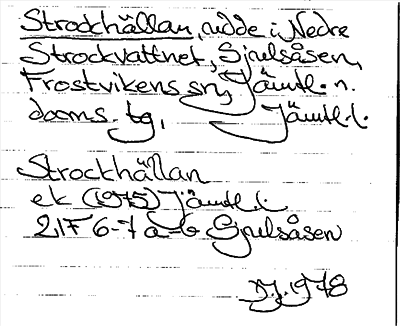 Strockhällan, udde i Nedre
Strockvattnet, Sjulsåsen,
Frostvikens sn, Jämtl. n.
doms. tg, Jämtl. l.
Strockhällan
ek (1975) Jämtl. l.
21F 6-7 a-b Sjulsåsen
1978